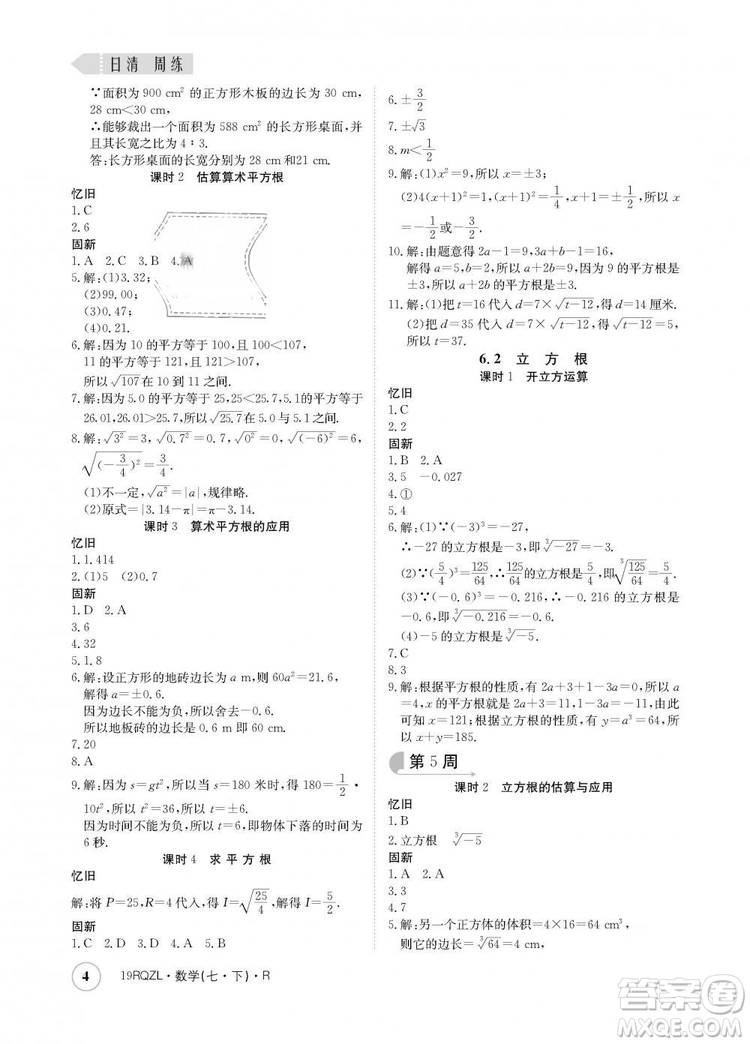 日清 周练
∵面积为 900 cm² 的正方形木板的边长为 30 cm,
28 cm<30 cm,
∴能够裁出一个面积为 588 cm² 的长方形桌面,
并且其长宽之比为 4∶3.
答:长方形桌面的长宽分别为 28 cm和21 cm.
课时 2 估算算术平方根
忆旧
1.C
2.6
固新
1.A 2.C 3.B 4.A
5.解:(1)3.32;
(2)99.00;
(3)0.47;
(4)0.21.
6.解:因为 10 的平方等于 100,100<107,
11 的平方等于 121,107<121,
所以√107在10和11之间.
7.解:因为 5.0 的平方等于 25,25<25.7,5.1的平方等于
26.01,26.01>25.7,所以√25.7在 5.0 与 5.1 之间.
8.解:√3²=3,√0.7²=0.7,√0²=0,√(-6)²=6,
√(-3/4)²=3/4.
(1)不一定,√a²=|a|,规律略.
(2)原式=|3.14-π|=π-3.14.
课时 3 算术平方根的应用
忆旧
1.1.414
2.(1)5 (2)0.7
固新
1.D 2.A
3.6
4.32
5.1.8
6.解:设正方形的地砖边长为 a 米,则 60a²=21.6,
解得 a=±0.6.
因为边长不能为负,所以舍去-0.6.
所以地板砖的边长是 0.6 m 即 60 cm.
7.20
8.A
9.解:因为 s=gt²,所以当 s=180 米时,得 180=1/2·
10t²,所以t²=36,所以t=±6.
因为时间不能为负,所以t=6,即物体下落的时间为
6 秒.
课时 4 求 平 方 根
忆旧
解:将 P=25,R=4 代入,得 I²=25/4,所以 I=5/2.
固新
1.D 2.A 3.C 4.D 5.A
6.±3/2
7.±√3
8.m<1/2
9.解:(1)x²=9,所以x=±3;
(2)4(x+1)²=1,(x+1)²=1/4,所以 x+1=±1/2,所以
x=-1/2或-3/2.
10.解:由题意得 2a-1=9,3a+b-1=16,
解得 a=5,b=2,所以 a+2b=9,所以 a+2b 的平方根是
±3,所以 a+2b的平方根是±3.
11.解:(1)把 t=16 代入 d=7×√t-12,得 d=14 厘米.
(2)把 d=35 代入 d=7×√t-12,得 √t-12=5,所
以t=37.
6.2 立 方 根
课时 1 开立方运算
忆旧
1.C
2.2
固新
1.B 2.A
3.5 -0.027
4.①
5.4
6.解:(1)∵(-3)³=-27,
∴-27 的立方根是-3,即∛-27=-3.
(2)∵(5/4)³=125/64,∴125/64的立方根是5/4,即∛125/64=5/4.
(3)∵(-0.6)³=-0.216,∴-0.216 的立方根是
-0.6,即∛-0.216=-0.6.
(4)-5 的立方根是∛-5.
7.C
8.3
9.解:根据平方根的性质,有 2a+3+1-3a=0,所以a
=4,x=(2a+3)²=(2×4+3)²=121;根据立方根的性
质,可知 x=121;y=a³=4³=64.
x+y=185.
第 5 周
课时 2 立方根的估算与应用
忆旧
1.B
2.立方根 ∛-5
固新
1.C 2.A
3.3
4.7
5.解:另一个正方体的体积=4×16=64 cm³,
则它的边长=∛64=4 cm.
4 19RQZL·数学(七·下)·R
答案圈
MXQE.COM